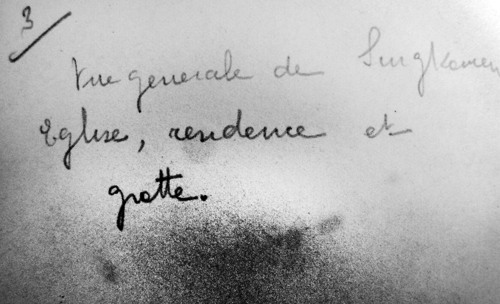 3/
Vue generale de
Eglise, residence et
grotte.